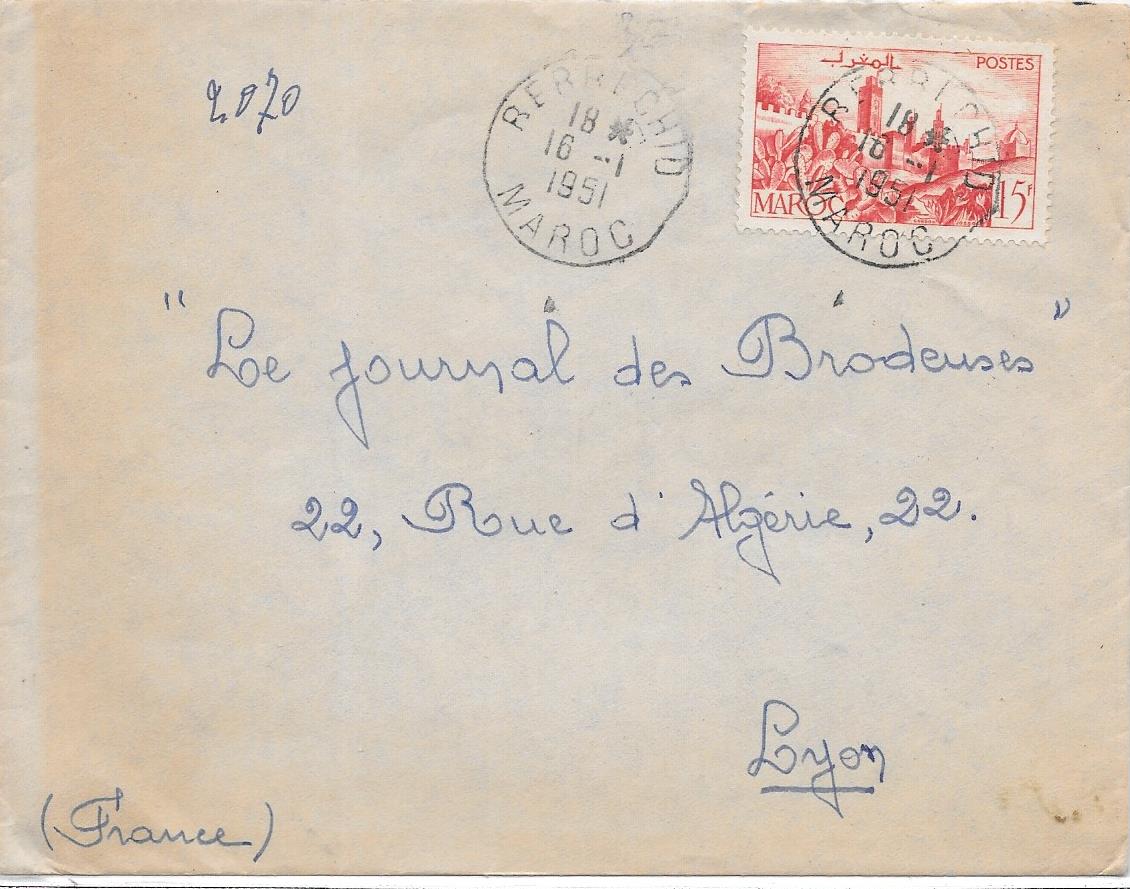 2070
BERRECHID
18 *
16 -1
1951
MAROC
المغرب
POSTES
MAROC
15F
BERRECHID
18 *
16 -1
1951
MAROC
"Le journal des Brodeuses"
22, Rue d'Algérie, 22.
Lyon
(France)